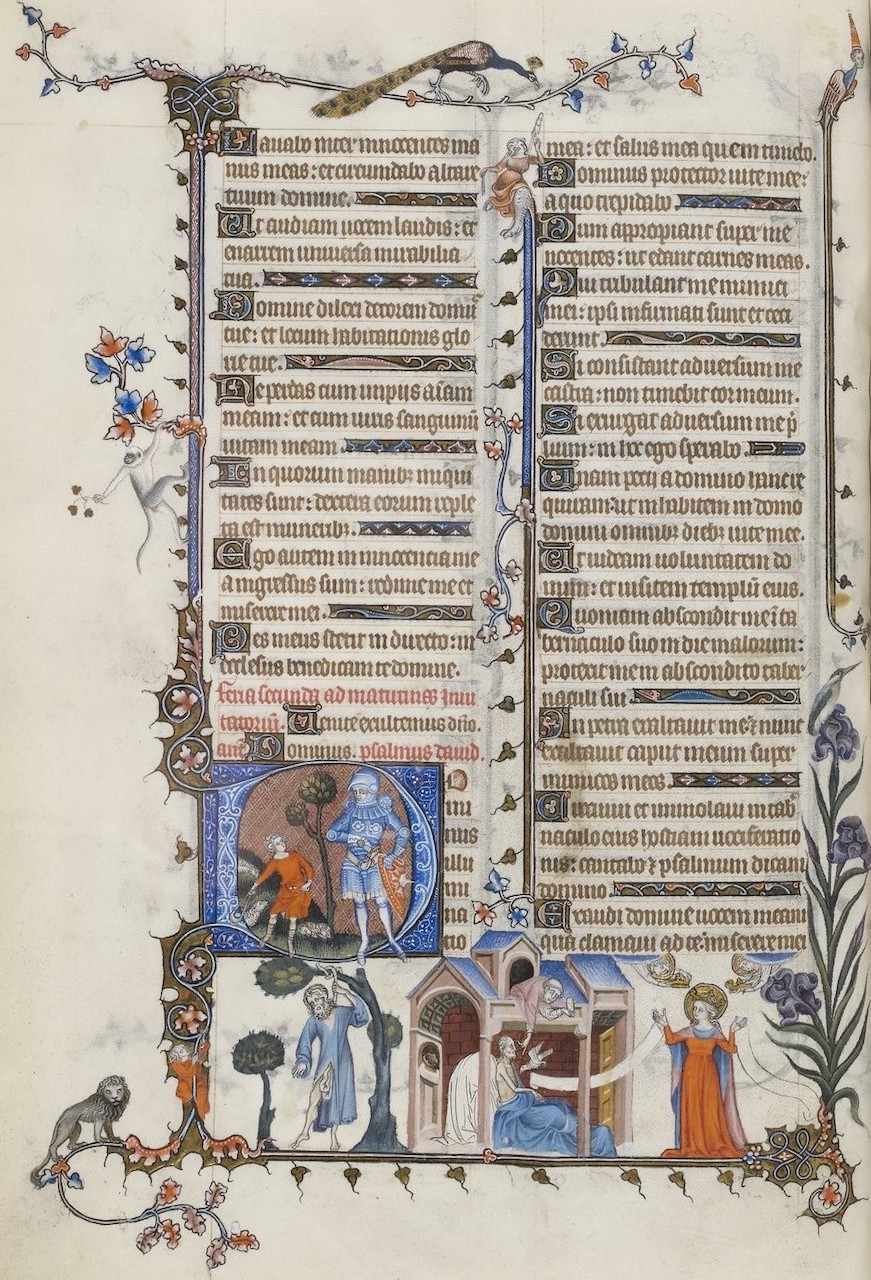 Lauabo inter innocentes ma
nus meas: et circundabo altare
tuum domine.
Ut audiam uocem laudis: et
enarrem uniuersa mirabilia
tua.
Domine dilexi decorem domuˢ
tue: et locum habitationis glo
rie tue.
Ne perdas cum impijs aīam
meam: et cum uiris sanguinū
uitam meam.
In quorum manibꝫ iniqui
tates sunt: dextera eorum reple
ta est muneribꝫ.
Ego autem in innocentia me
a ingressus sum: redime me et
miserere mei.
Pes meus stetit in directo: in
ecclesiis benedicam te domine.
feria secunda ad matutinas Inui
tatoriū. Uenite exultemus dn̄o.
an̄t Dominus. psalmus dauid.
D
mi
nus
illu
mi
na
tio
mea: et salus mea quem timebo.
Dominus protector uite mee:
a quo trepidabo.
Dum appropiant super me
nocentes: ut edant carnes meas.
Qui tribulant me inimici
mei: ipsi infirmati sunt et ceci
derunt.
Si consistant aduersum me
castra: non timebit cor meum.
Si exurgat aduersum me p̄
lium: in hoc ego sperabo.
Unam petii a domino hanc re
quiram: ut inhabitem in domo
domini omnibꝫ diebꝫ uite mee.
Ut uideam uoluntatem do
mini: et uisitem templū eius.
Quoniam abscondit me ī ta
bernaculo suo in die malorum:
protexit me in abscondito taber
naculi sui.
In petra exaltauit me: ⁊ nunc
exaltauit caput meum super
inimicos meos.
Circuiui et immolaui in tab̄
naculo eius hostiam uociferatio
nis: cantabo ⁊ psalmum dicam
domino.
Exaudi domine uocem meam
qua clamaui ad te: miserere mei